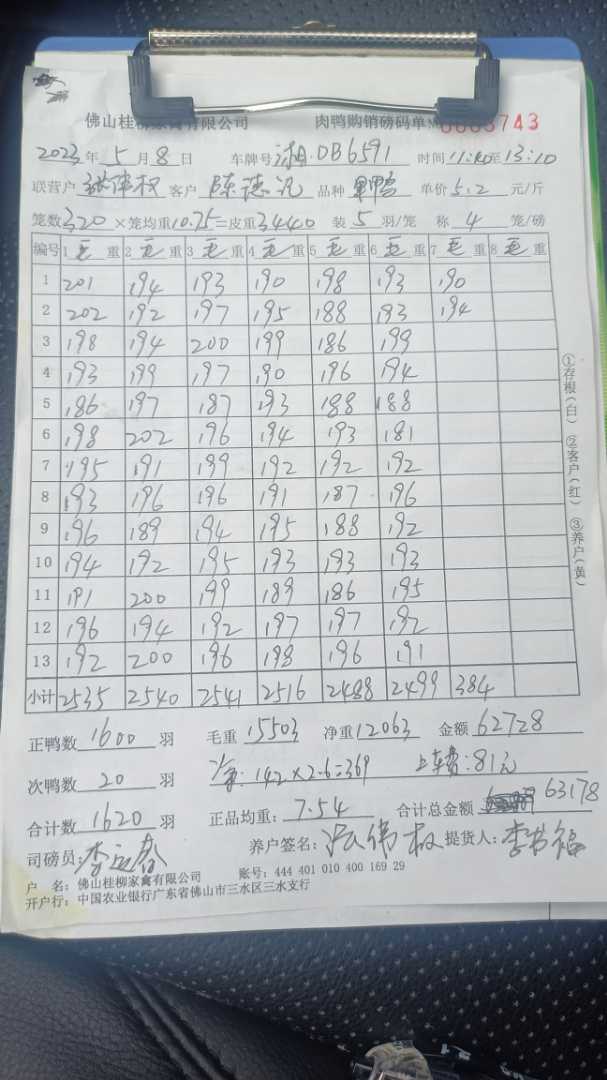 佛山桂柳家禽有限公司 肉鸭购销磅码单 № 0003743
2023年5月8日 车牌号 湘·DB6591 时间11:10至13:10
联营户 客户 陈德 品种 单价5.2元/斤
笼数320×笼均重10.75=皮重3440 装5羽/笼 称4笼/磅
编号 1毛重 2毛重 3毛重 4毛重 5毛重 6毛重 7毛重 8毛重
1 201 194 193 190 198 193 190
2 202 192 197 195 188 193 194
3 198 194 200 199 186 199
4 193 199 197 190 196 194
5 186 197 187 193 188 188
6 198 202 196 194 193 181
7 195 191 199 192 192 192
8 193 196 196 191 187 196
9 196 189 194 195 188 192
10 194 192 195 193 193 193
11 191 200 199 189 186 195
12 196 194 192 197 197 192
13 192 200 196 198 196 191
小计 2535 2540 2541 2516 2488 2499 384
正鸭数1600羽 毛重15503 净重12063 金额62728
次鸭数20羽 142×2.6=369 上车费:81元
合计数1620羽 正品均重:7.54 合计总金额 63178
司磅员: 养户签名: 提货人:李书福
户 名:佛山桂柳家禽有限公司 账号:444 401 010 400 169 29
开户行:中国农业银行广东省佛山市三水区三水支行
①存根(白) ②客户(红) ③养户(黄)